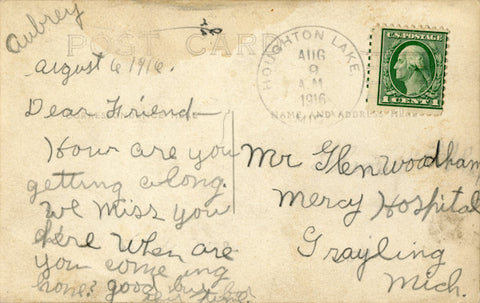 Aubrey
POST CARD
August 6 1916.
Dear Friend
How are you
getting along.
We miss you
here When are
you come ing
home? good bye
HOUGHTON LAKE
AUG
9
A.M.
1916
MICH.
U.S. POSTAGE
1 CENT 1
NAME AND ADDRESS HERE
Mr Glen Woodham
Mercy Hospital
Grayling
Mich.